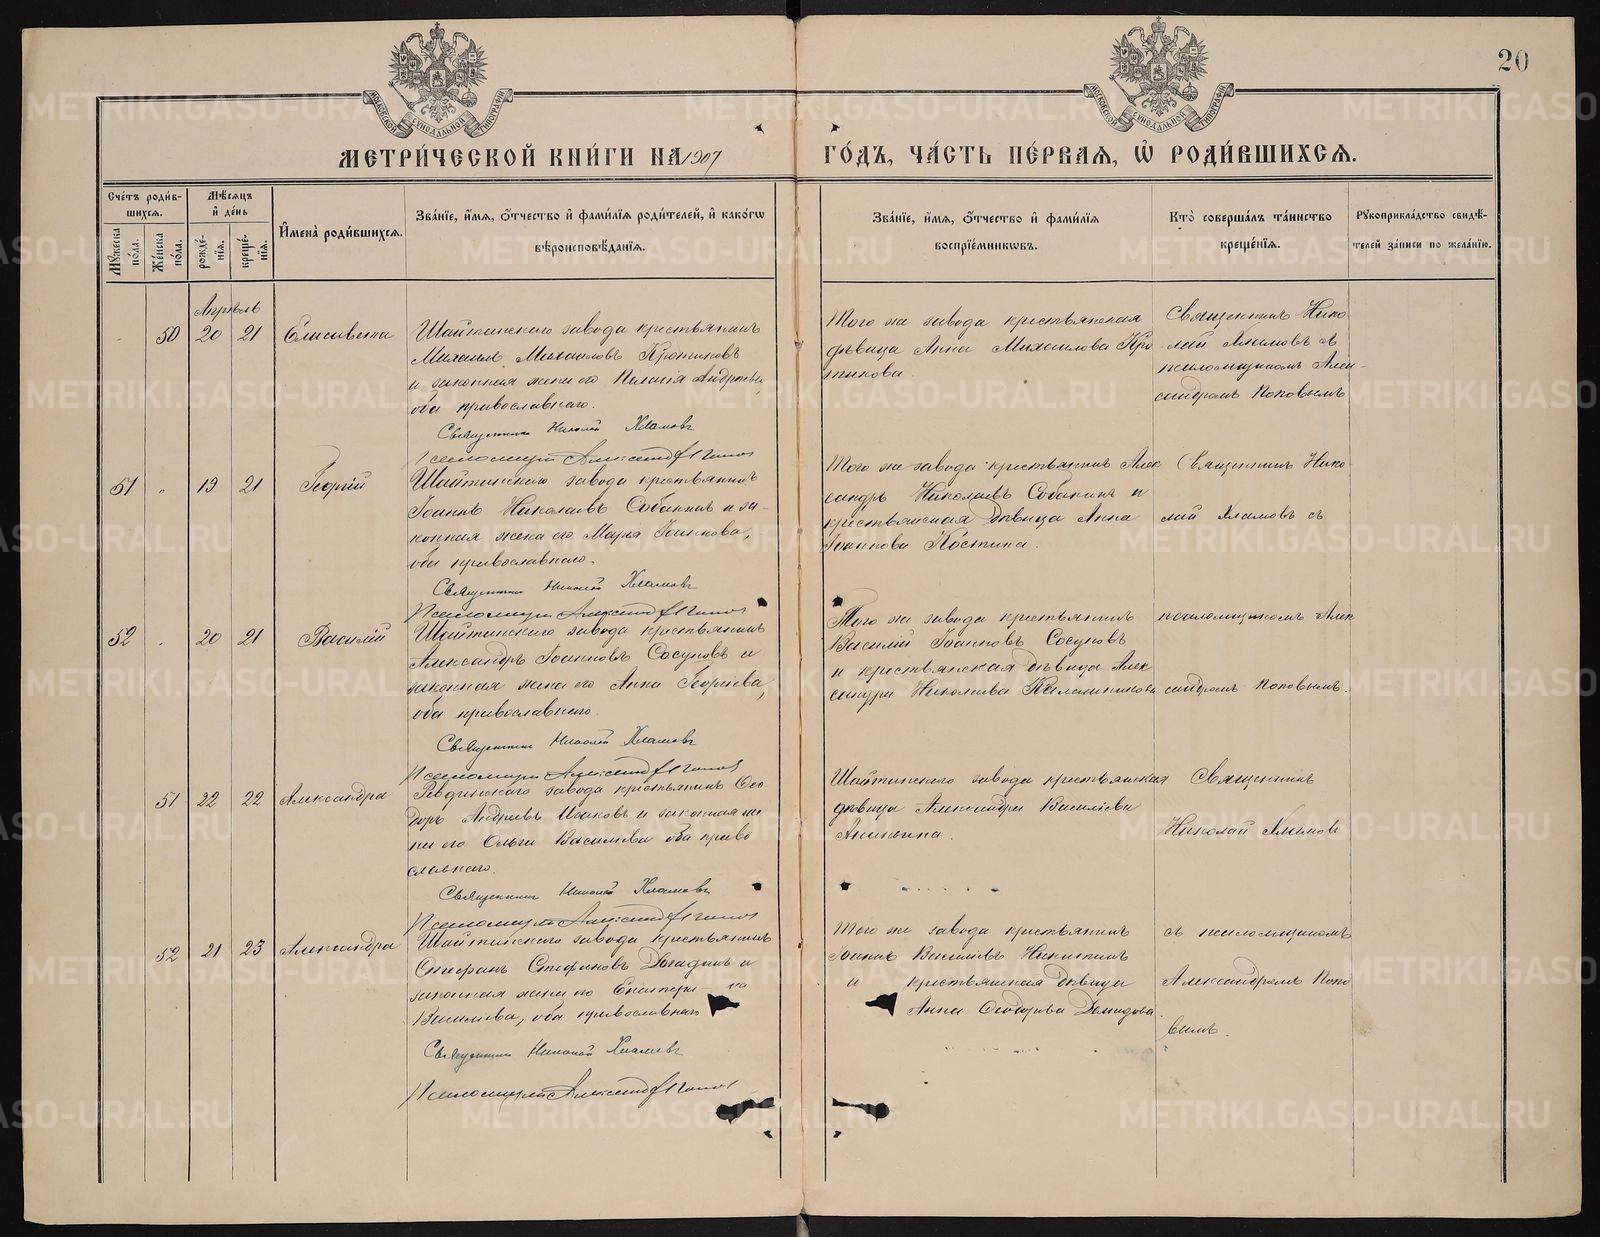 20
МОСКОВСКОЙ СѴНОДАЛЬНОЙ ТИПОГРАФІИ
МОСКОВСКОЙ СѴНОДАЛЬНОЙ ТИПОГРАФІИ
МЕТРИ́ЧЕСКОЙ КНИ́ГИ НА 1907
ГО́ДЪ, ЧА́СТЬ ПЕ́РВАѦ, Ѡ҆ РОДИ́ВШИХСѦ.
Сче́тъ роди́в-
шихсѧ.
Мꙋ́жеска по́ла.
Же́нска по́ла.
Мѣ́сѧцъ
и҆ де́нь
рожде́-
нїѧ.
креще́-
нїѧ.
И҆мена̀ роди́вшихсѧ.
Зва́нїе, и҆́мѧ, ѻ҆́тчество и҆ фами́лїѧ роди́телей, и҆ како́гѡ
вѣроисповѣ́данїѧ.
Зва́нїе, и҆́мѧ, ѻ҆́тчество и҆ фами́лїѧ
воспрїе́мникѡвъ.
Кто̀ соверша́лъ та́инство
креще́нїѧ.
Рꙋкоприкла́дство свидѣ́-
телей за́писи по жела́нїю.
Апрѣль
50 20 21 Елисавета
Шайтанского завода крестьянинъ
Михаилъ Михаиловъ Кротиковъ
и законная жена его Пелагія Андреева,
оба православнаго.
Священникъ Николай Хламовъ
Псаломщикъ Александр Попов
Того же завода крестьянская
дѣвица Анна Михаилова Кро
тикова.
Священникъ Нико
лай Хламовъ съ
псаломщикомъ Алек-
сандромъ Поповымъ
51 " 19 21 Георгій
Шайтанского завода крестьянинъ
Іоаннъ Николаевъ Собакинъ и за-
конная жена его Марія Іоаннова,
оба православнаго.
Священникъ Николай Хламовъ
Псаломщикъ Александр Попов
Того же завода крестьянинъ Алек
сандръ Николаевъ Собакинъ и
крестьянская дѣвица Анна
Іоаннова Костина.
Священникъ Нико-
лай Хламовъ съ
52 . 20 21 Василій
Шайтанского завода крестьянинъ
Александръ Іоанновъ Сосуновъ и
законная жена его Анна Георгіева,
оба православнаго.
Священникъ Николай Хламовъ
Псаломщикъ Александр Попов
Того же завода крестьянинъ
Василій Іоанновъ Сосуновъ
и крестьянская дѣвица Алек
сандра Николаева Калашникова
псаломщикомъ Алек
сандромъ Поповымъ.
51 22 22 Александра
Ревдинского завода крестьянинъ Ѳео
доръ Андреевъ и законная же
на его Ольга Василіева оба право
славнаго.
Священникъ Николай Хламовъ
Псаломщикъ Александр Попов
Шайтанского завода крестьянская
дѣвица Александра Василіева
Ананьина.
Священникъ
Николай Хламовъ
52 21 23 Александра
Шайтанского завода крестьянинъ
Стефанъ Стефановъ и
законная жена его Екатери-на
Василіева, оба православнаго
Священникъ Николай Хламовъ
Псаломщикъ Александр Попов
Того же завода крестьянинъ
Іоаннъ Василіевъ Никитинъ
и крестьянская дѣвица
Анна Ѳеодорова Демидова.
съ псаломщикомъ
Александромъ Попо
вымъ.
METRIKI.GASO-URAL.RU